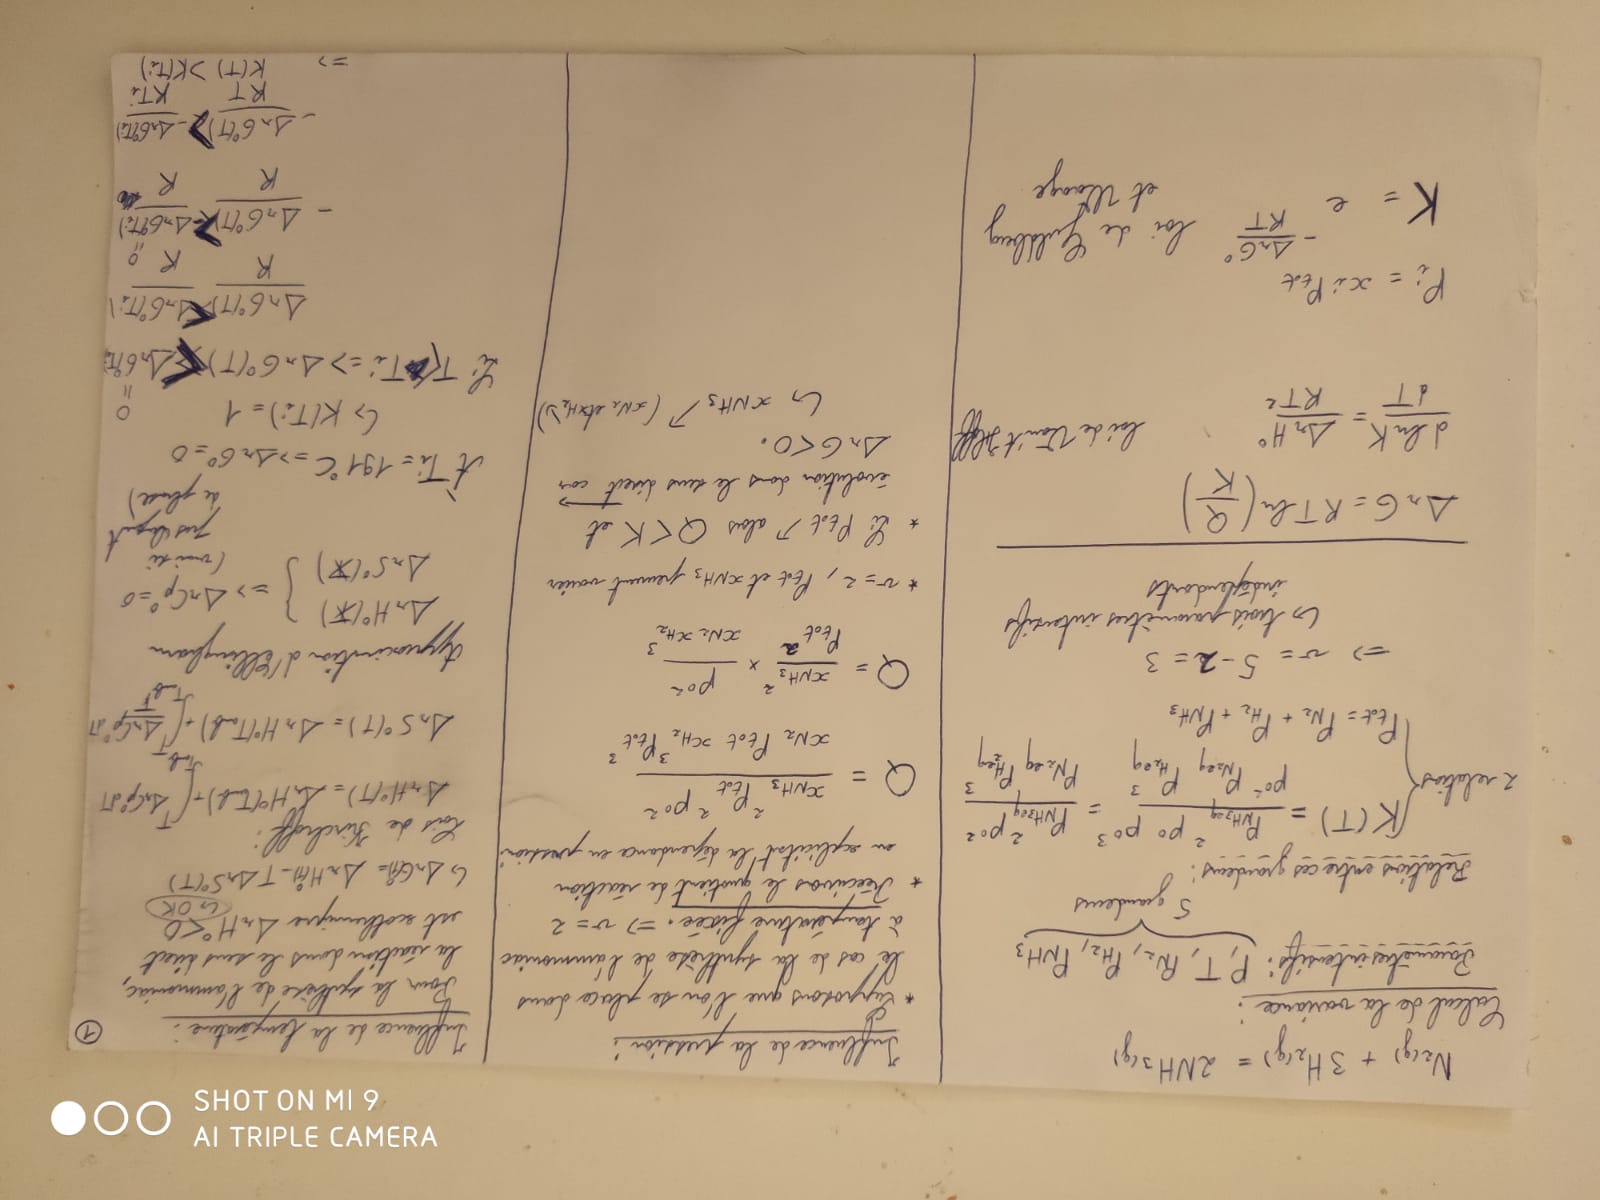 SHOT ON MI 9
AI TRIPLE CAMERA
N₂(g) + 3H₂(g) = 2NH₃(g)
Calcul de la variance :
Paramètres intensifs : P, T, P_N₂, P_H₂, P_NH₃
5 grandeurs
Relations entre ces grandeurs :
2 relations
K(T) = P_NH₃eq² P° P°³ / P°² P_N₂eq P_H₂eq³ = P_NH₃eq² P°² / P_N₂eq P_H₂eq³
Ptot = P_N₂ + P_H₂ + P_NH₃
=> v = 5 - 2 = 3
↳ trois paramètres intensifs
indépendants
ΔrG = RT ln(Q/K)
d lnK / dT = ΔrH° / RT² loi de Van't Hoff
Pi = xi Ptot
K = e^(-ΔrG°/RT) loi de Guldberg
et Waage
Influence de la pression :
* Supposons que l'on se place dans
le cas de la synthèse de l'ammoniac
à température fixée. => v = 2
* Réécrivons le quotient de réaction
en explicitat la dépendance en pression:
Q = x_NH₃² Ptot² P°² / x_N₂ Ptot x_H₂³ Ptot³
Q = x_NH₃² / Ptot² × P°² / x_N₂ x_H₂³
* v = 2, Ptot et x_NH₃ peuvent varier
* Si Ptot ↗ alors Q < K et
évolution dans le sens direct → car
ΔrG < 0.
↳ x_NH₃ ↗ (x_N₂ et x_H₂ ↘)
①
Influence de la température :
Pour la synthèse de l'ammoniac,
la réaction dans le sens direct
est exothermique ΔrH° < 0
↳ OK
↳ ΔrG°(T) = ΔrH°(T) - TΔrS°(T)
Lois de Kirchoff :
ΔrH°(T) = ΔrH°(Tamb) + ∫_Tamb^T ΔrCp° dT
ΔrS°(T) = ΔrH°(Tamb) + ∫_Tamb^T ΔrCp°/T dT
Approximation d'Ellingham
ΔrH°(T)
ΔrS°(T)
} => ΔrCp° = 0
(vrai si
pas
de phase)
À Ti = 191°C => ΔrG° = 0
↳ K(Ti) = 1
Si T < Ti => ΔrG°(T) < ΔrG°(Ti) = 0
ΔrG°(T) / R < ΔrG°(Ti) / R
- ΔrG°(T) / R > - ΔrG°(Ti) / R = 0
- ΔrG°(T) / RT > - ΔrG°(Ti) / RTi
=> K(T) > K(Ti)